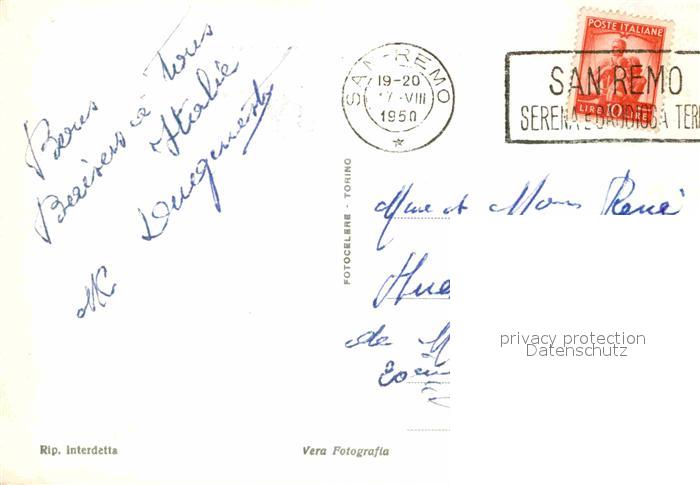 Bons
Baisers à Tous
Italie
MC
SAN-REMO
19-20
17·VIII
1950
POSTE ITALIANE
LIRE 10 LIRE
SAN REMO
SERENA E
TER
FOTOCELERE - TORINO
Mme et Mons René
Hue
de
privacy protection
Datenschutz
Rip. interdetta
Vera Fotografia